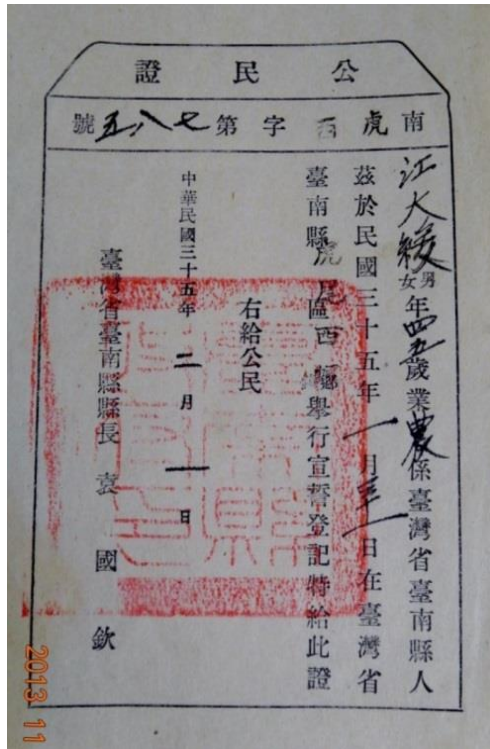 公民證
南虎西字第七八五號
江大綏男女年四五歲業農係臺灣省臺南縣人
茲於民國三十五年一月三一日在臺灣省
臺南縣虎尾區西鄉鎮舉行宣誓登記特給此證
右給公民
中華民國三十五年二月一日
臺灣省臺南縣縣長袁國欽
2013 11